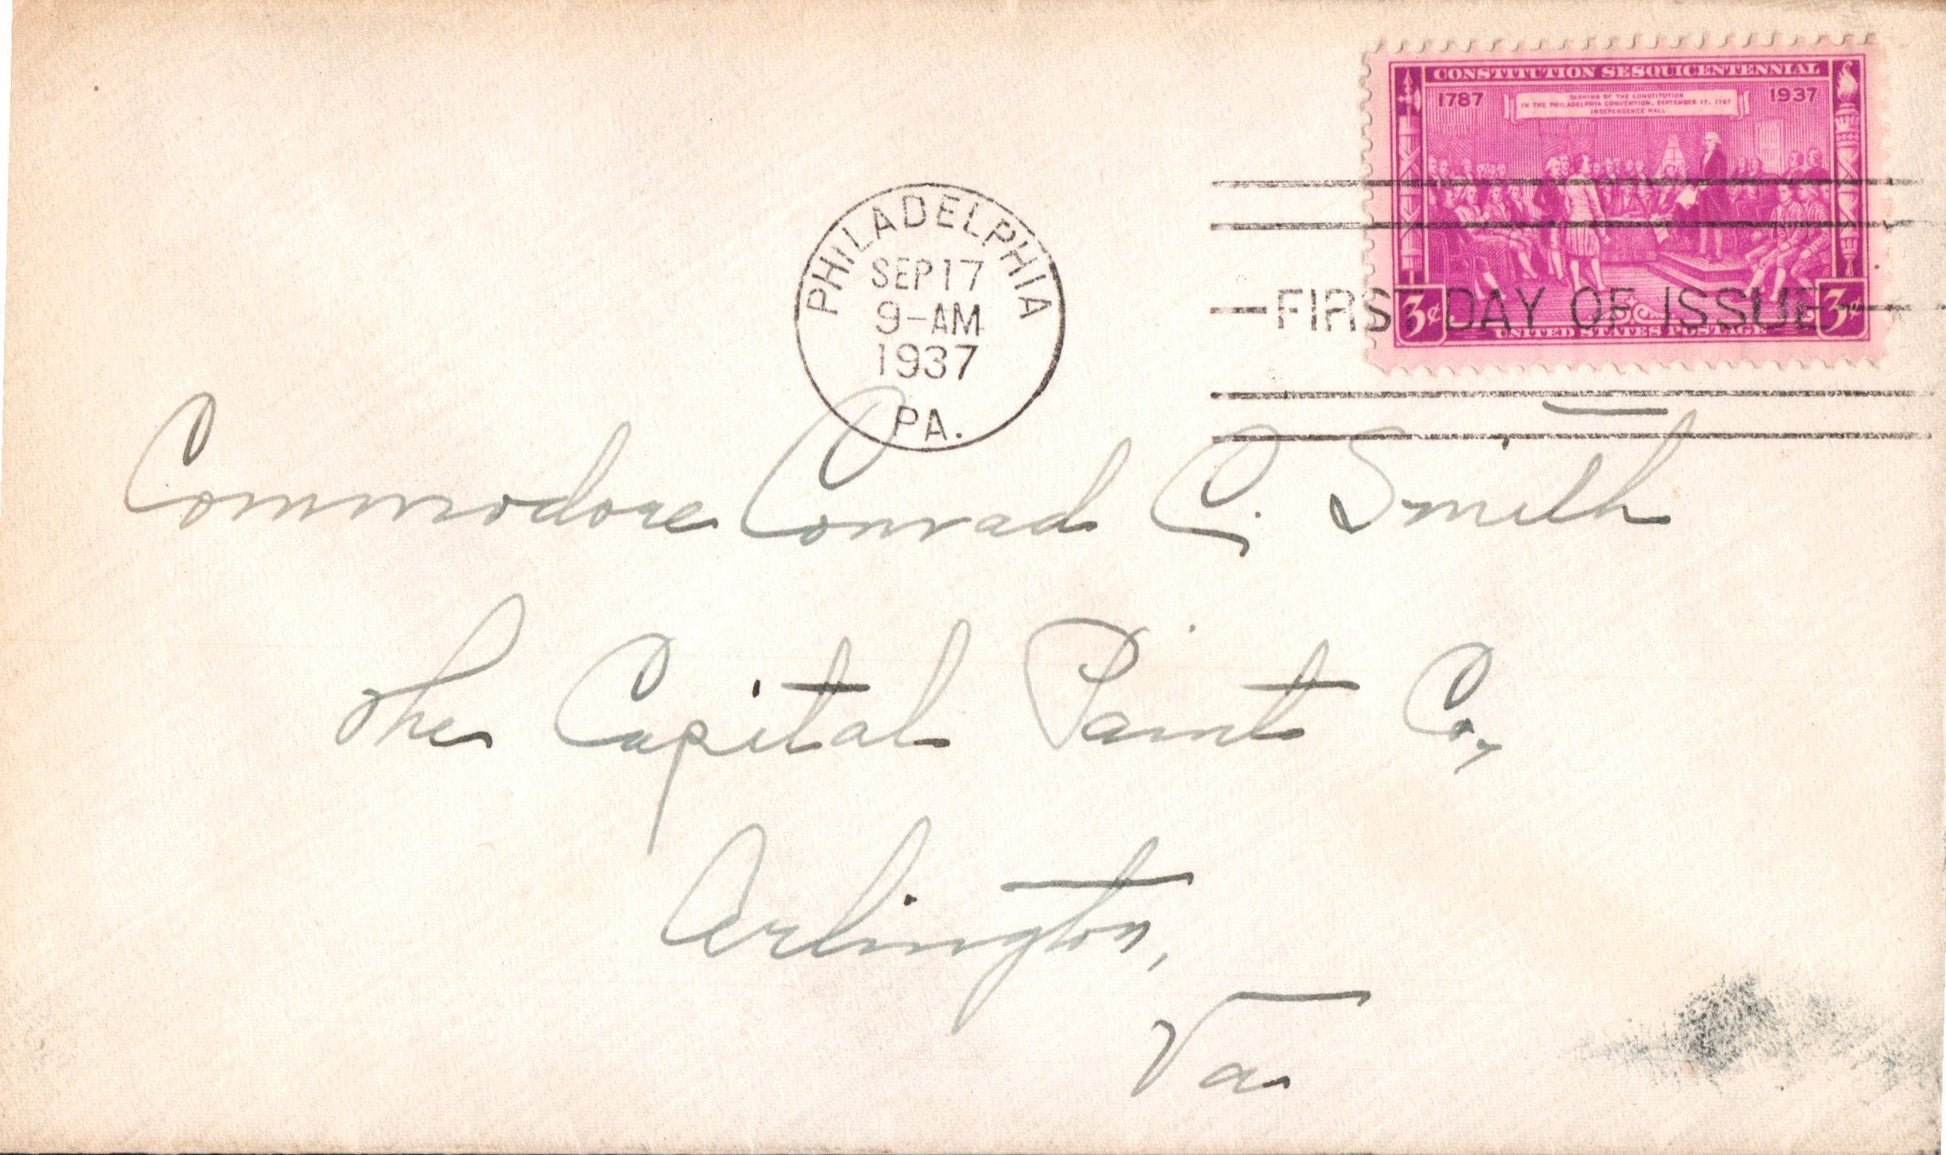 CONSTITUTION SESQUICENTENNIAL
1787 1937
SIGNING OF THE CONSTITUTION
IN THE PHILADELPHIA CONVENTION, SEPTEMBER 17, 1787
INDEPENDENCE HALL
3¢ 3¢
UNITED STATES POSTAGE
PHILADELPHIA
SEP 17
9-AM
1937
PA.
FIRST DAY OF ISSUE
Commodore Conrad C. Smith
The Capital Paint Co,
Arlington,
Va